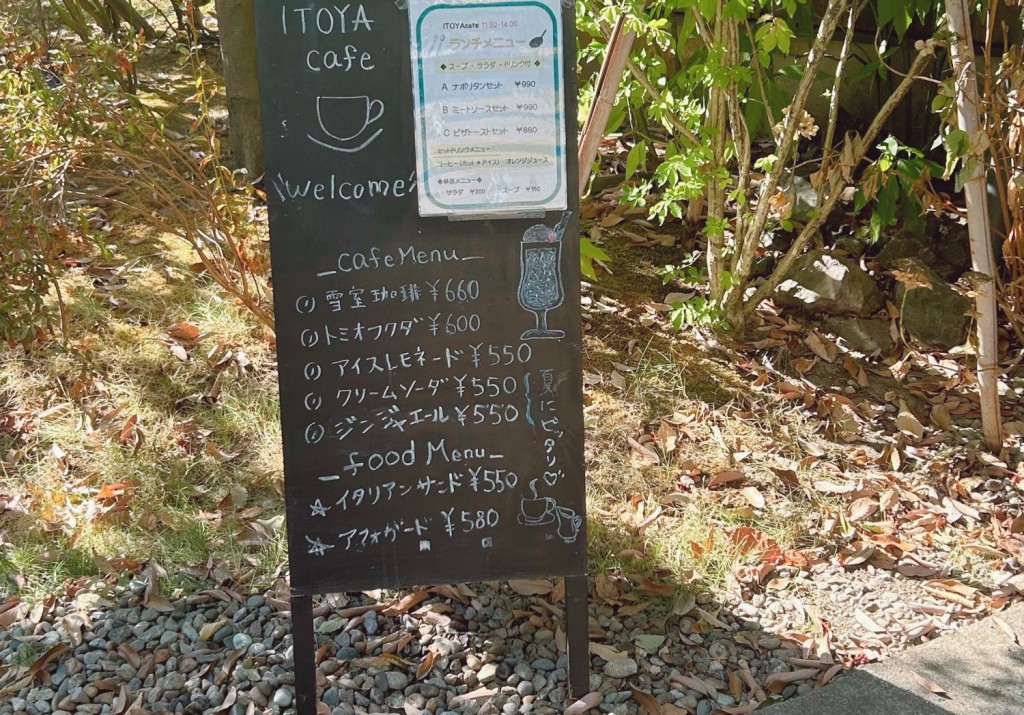 ITOYA
cafe
Welcome
ITOYAcafe 11:30-14:00
ランチメニュー
◆スープ・サラダ・ドリンク付◆
A ナポリタンセット ¥990
B ミートソースセット ¥990
C ピザトーストセット ¥880
セットドリンクメニュー
コーヒー(ホット•アイス) オレンジジュース
◆単品メニュー◆
サラダ ¥200 スープ ¥150
cafe Menu
雪室珈琲 ¥660
トミオフクダ ¥600
アイスレモネード ¥550
クリームソーダ ¥550
ジンジャエール ¥550
夏にピッタリ♡
food Menu
☆イタリアンサンド ¥550
☆アフォガード ¥580